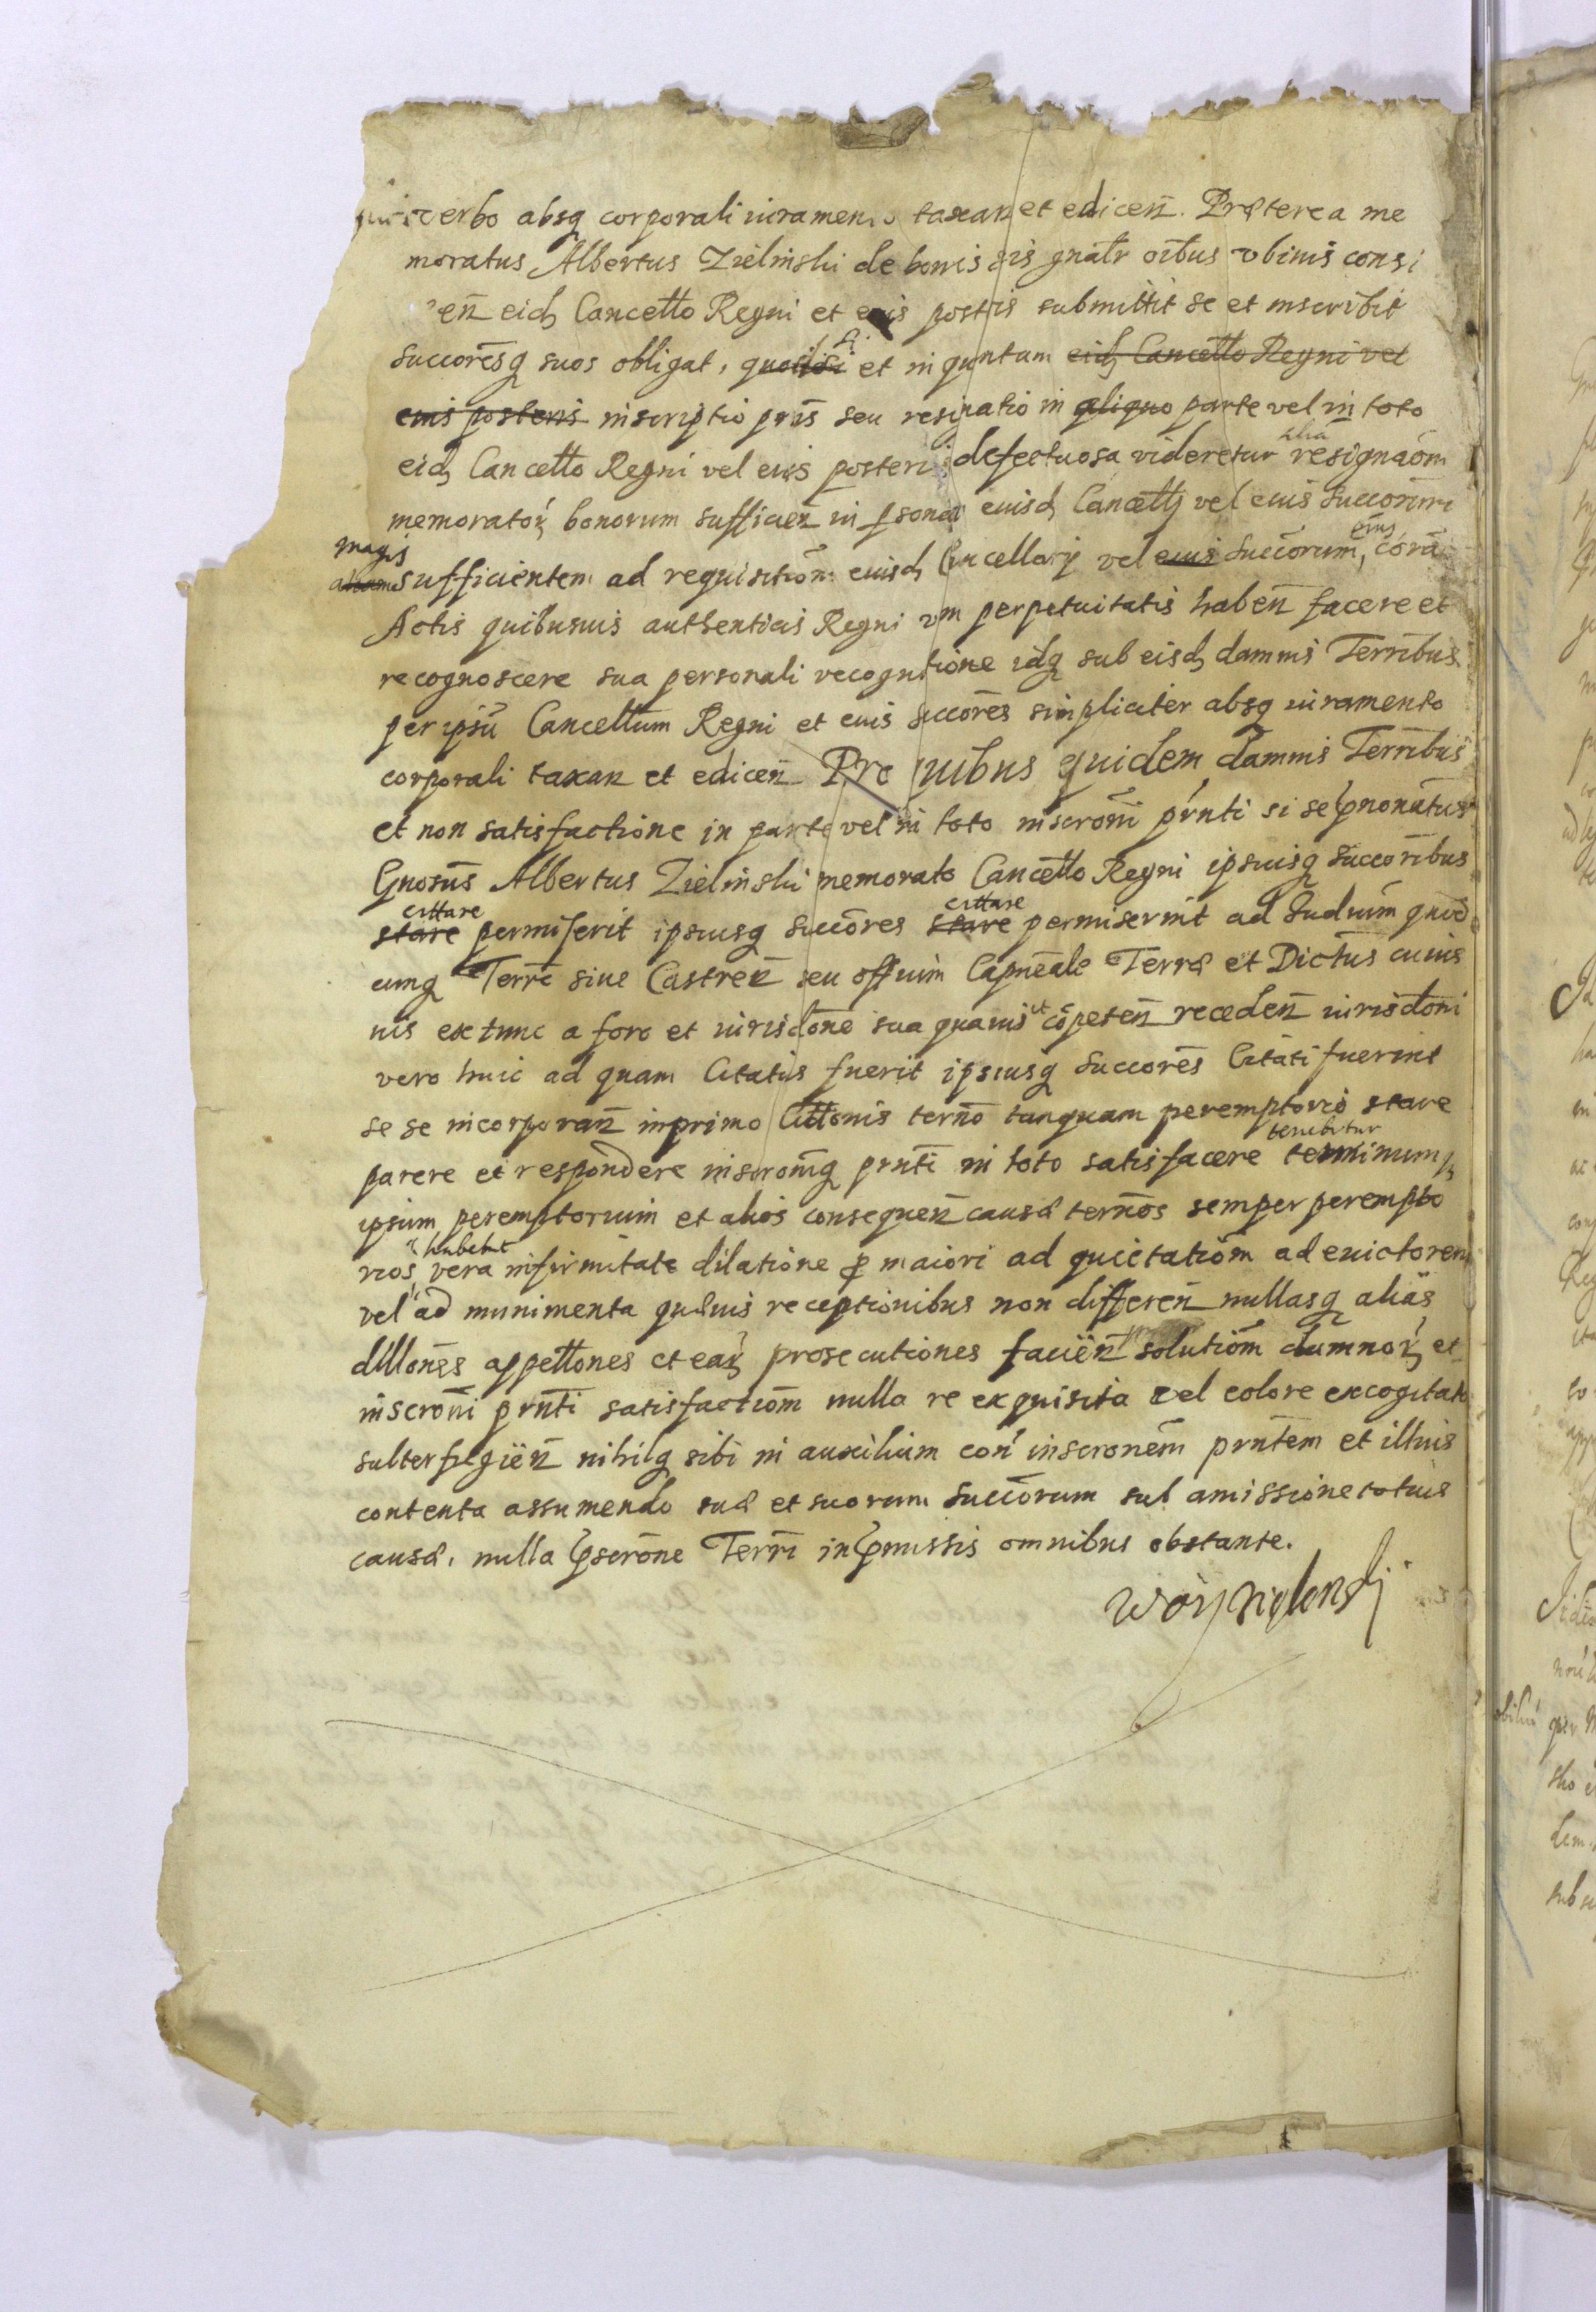 verbo absq corporali iuramento taxan et edicen. Præterea me
moratus Albertus Zielinski de bonis suis gnalr oibus vbiuis consi
en eidq Cancello Regni et eius postris submittit se et inscribit
Succoresq suos obligat, quod si et in quntum eidq Cancello Regni vel
eius posteris inscriptio pns seu resignatio in aliquo parte vel in toto
eidq Cancello Regni vel eius posteri defectuosa videretur alia resignaom
memorator bonorum sufficien in psona eiusdq Cancellj vel eius Succorum
magis sufficientem ad requisitiom eiusdq Cancellarij vel eius Succorum, eius corā
Actis quibusuis authenticis Regni vm perpetuitatis haben facere et
recognoscere sua personali recognitione idq sub eisdq damnis Terribus
per ipsū Cancellum Regni et eius Succores simpliciter absq iuramento
corporali taxan et edicen Pro quibus quidem damnis Terribus
et non satisfactione in parte vel in toto inscroni prnti si se pnonatus
Gnosus Albertus Zielinski memorato Cancello Regni ipsiusq Succoribus
stare cittare permiserit ipsiusq Succores stare cittare permiserint ad Iudium quod
cunq Terre siue Castren seu offium Capneale Terræ et Dictus cuius
uis extunc a foro et iurisdone sua quauis vt cōpeten receden iurisdoni
vero huic ad quam Citatus fuerit ipsiusq Succores Citati fuerint
se se incorporan in primo Cittonis terno tanquam peremptorio stare
parere et respondere inscroniq prnti in toto satisfacere tenebitur terminum
ipsum peremptorium et alios consequen causæ ternos semper perempto
rios habebit vera infirmitate dilatione p maiori ad quietatiom ad euictorem
vel ad munimenta quæuis receptionibus non differen nullasq alias
dillones appellones et ear prosecutiones facien solutiom damnor et
inscroni prnti satisfactiom nulla re exquisita vel colore excogitato
subterfugien nihilq sibi in auxilium con inscronem prntem et illius
contenta assumendo suæ et suorum Succorum sub amissione totius
causæ, nulla pscrone Terri in pmissis omnibus obstante.